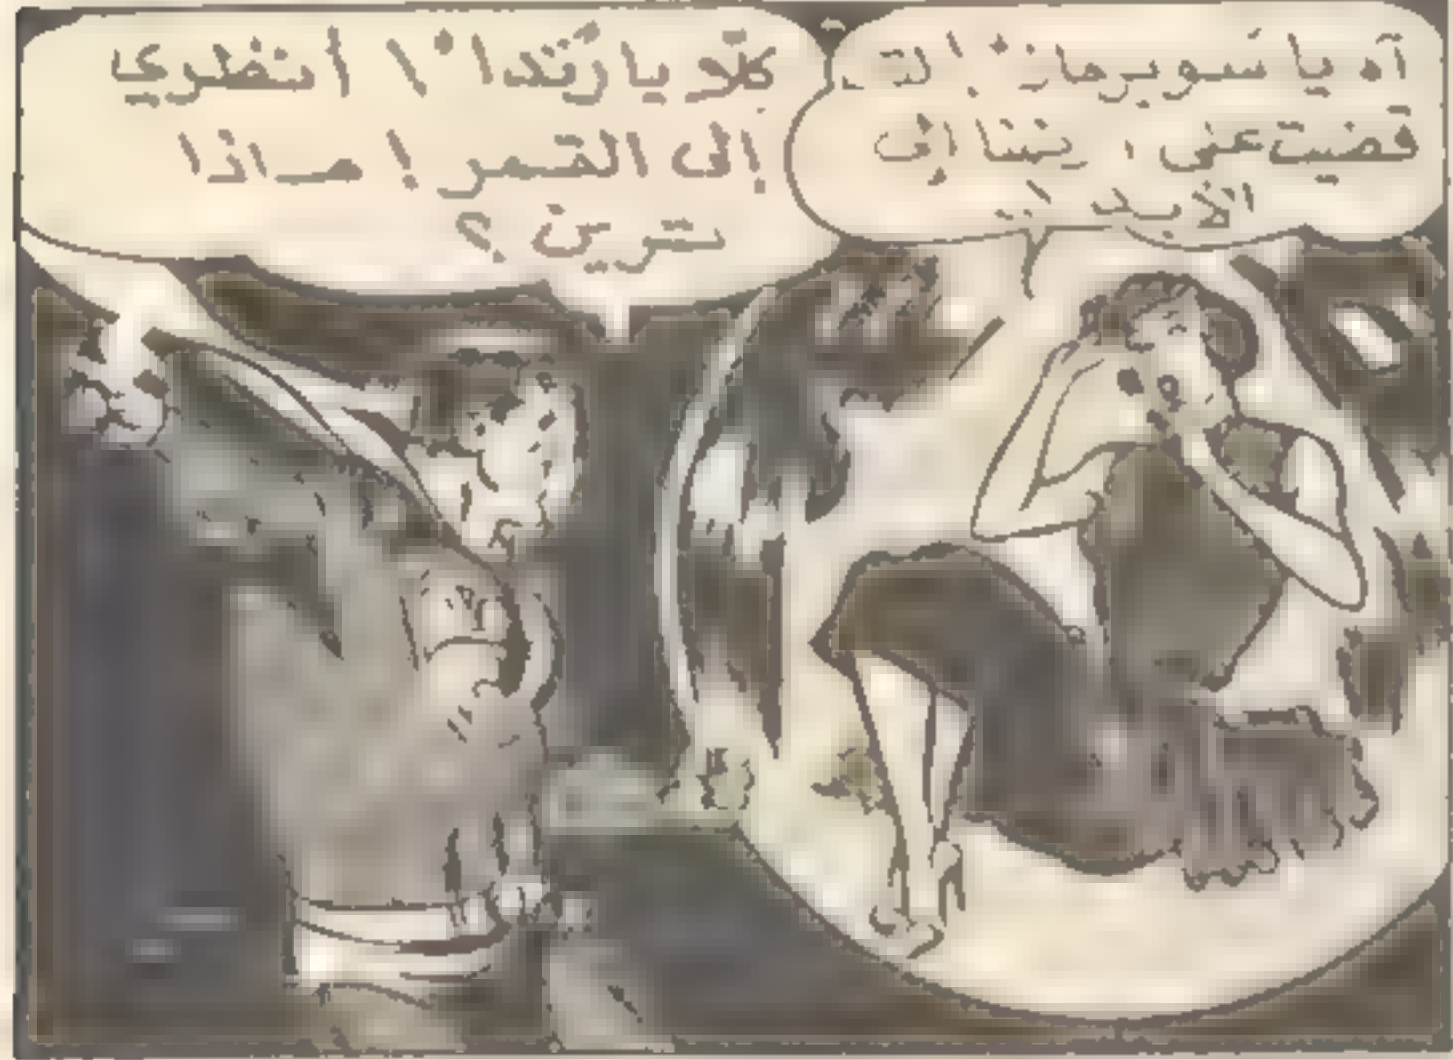 آه يا سوبرمان! لقد
قضيت على رندا إلى
الأبد!!
كلّا يا رندا! أنظري
إلى القمر! ماذا
ترين؟